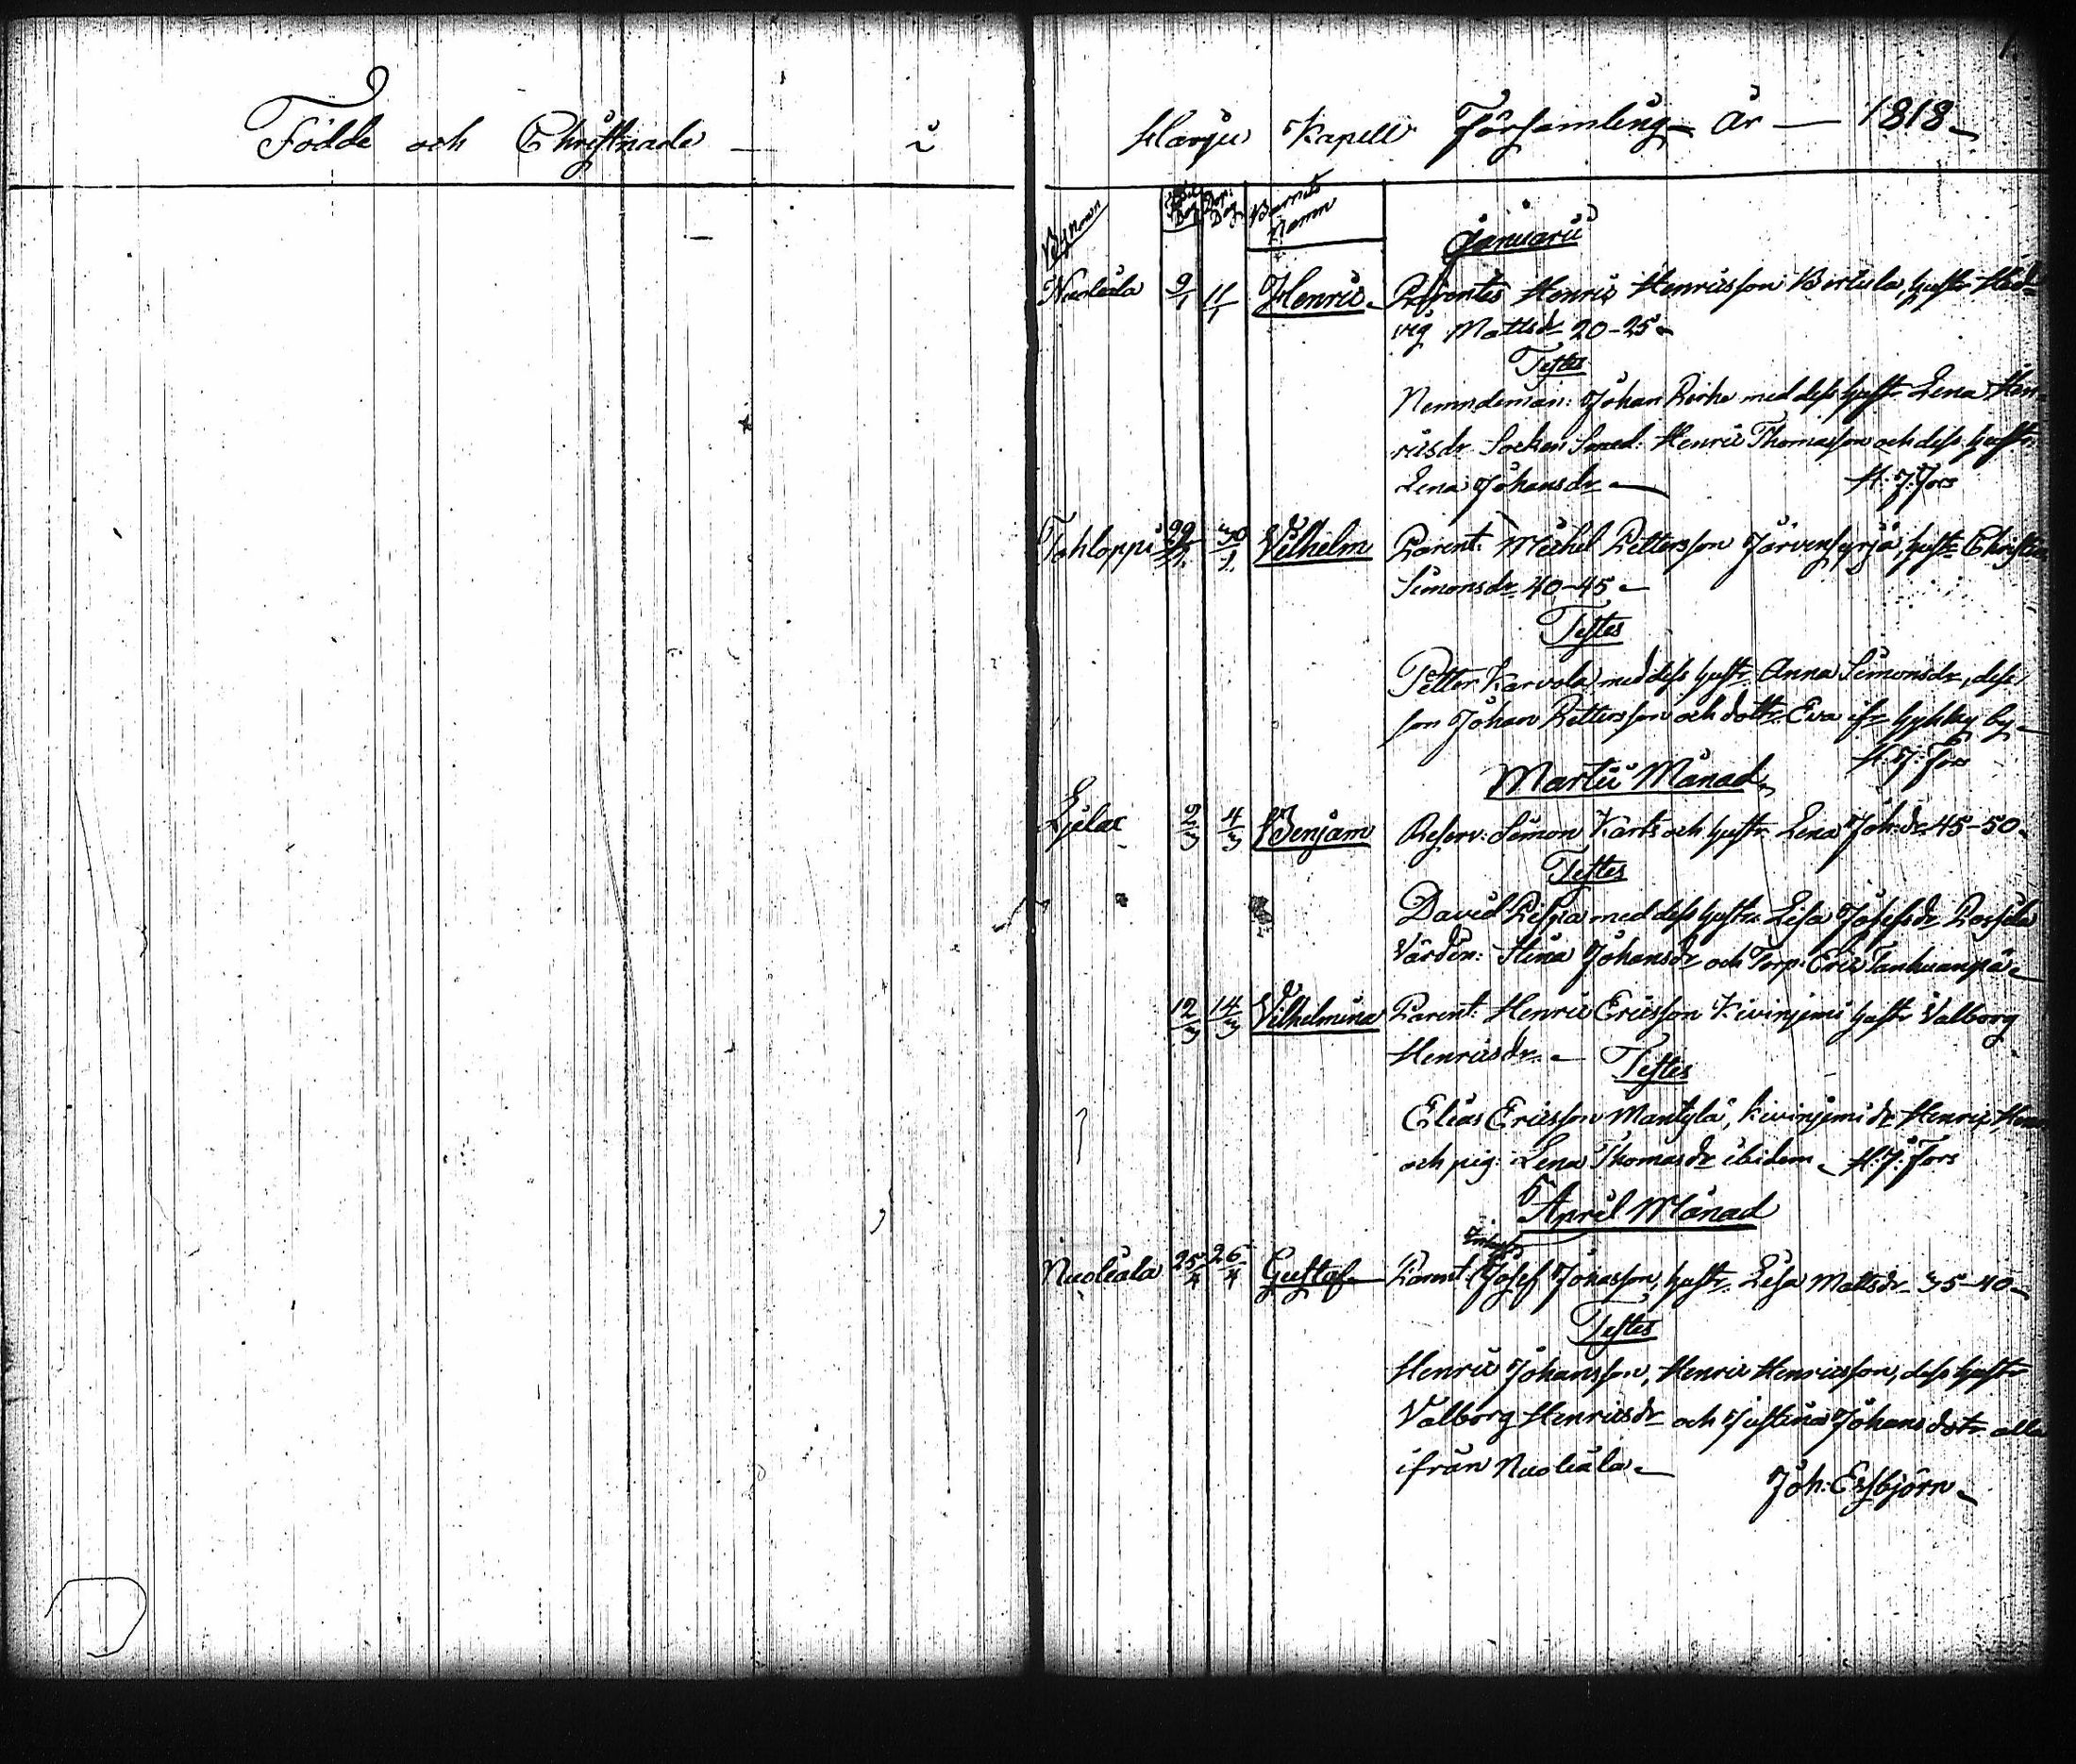 Födde och Christnade — i Harju Kapell Församling År — 1818
Bynamn Född Dag Döp: Dag Barnets Namn
Januarii
Nuoliala 9/1 11/1 Henric Parentes Henric Henricsson Bertula, hustr Hed=
vig Mattsdr 20-25
Testes
Nemndeman: Johan Pirhe med dess hustr Lena Hen
ricsdr Socken Smed: Henric Thomasson och dess hustr
Lena Johansdr — H: J: Fors
Tohloppi 29/1 30/1 Vilhelm Parent: Michel Pettersson Järvensyrjä, hustr Christina
Simonsdr 40-45
Testes
Petter Karvola med dess hustr Anna Simonsdr, dess
son Johan Pettersson och dottr Eva ifr by
H: J: Fors
Martii Månad
2/3 4/3 Benjam Reserv: Simon Kärts och hustr Lena Joh:dr 45-50
Testes
David med dess hustr Lisa Josefsdr
Värdin: Stina Johansdr och Torp: Eric Tanhuanpä
12/3 14/3 Vilhelmina Parent: Henric Ericsson Kivinjemi hustr Valborg
Henricsdr — Testes
Elias Ericsson Mäntylä, Kivinjemi dr Henric
och pig: Lena Thomasdr ibidem H: J: Fors
April Månad
Nuoliala 25/4 26/4 Gustaf Parent: Josef Jonasson, hustr Lisa Mattsdr 35-40
Testes
Henric Johansson, Henric Henricsson, dess hustr
Valborg Henricsdr och Justina Johansdotr alla
ifrån Nuoliala
Joh: Essbjörn